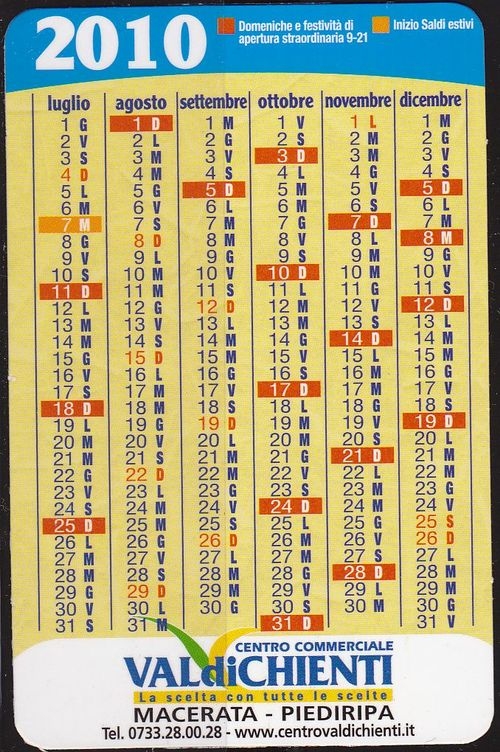 2010
Domeniche e festività di
apertura straordinaria 9-21
Inizio Saldi estivi
luglio
1 G
2 V
3 S
4 D
5 L
6 M
7 M
8 G
9 V
10 S
11 D
12 L
13 M
14 M
15 G
16 V
17 S
18 D
19 L
20 M
21 M
22 G
23 V
24 S
25 D
26 L
27 M
28 M
29 G
30 V
31 S
agosto
1 D
2 L
3 M
4 M
5 G
6 V
7 S
8 D
9 L
10 M
11 M
12 G
13 V
14 S
15 D
16 L
17 M
18 M
19 G
20 V
21 S
22 D
23 L
24 M
25 M
26 G
27 V
28 S
29 D
30 L
31 M
settembre
1 M
2 G
3 V
4 S
5 D
6 L
7 M
8 M
9 G
10 V
11 S
12 D
13 L
14 M
15 M
16 G
17 V
18 S
19 D
20 L
21 M
22 M
23 G
24 V
25 S
26 D
27 L
28 M
29 M
30 G
ottobre
1 V
2 S
3 D
4 L
5 M
6 M
7 G
8 V
9 S
10 D
11 L
12 M
13 M
14 G
15 V
16 S
17 D
18 L
19 M
20 M
21 G
22 V
23 S
24 D
25 L
26 M
27 M
28 G
29 V
30 S
31 D
novembre
1 L
2 M
3 M
4 G
5 V
6 S
7 D
8 L
9 M
10 M
11 G
12 V
13 S
14 D
15 L
16 M
17 M
18 G
19 V
20 S
21 D
22 L
23 M
24 M
25 G
26 V
27 S
28 D
29 L
30 M
dicembre
1 M
2 G
3 V
4 S
5 D
6 L
7 M
8 M
9 G
10 V
11 S
12 D
13 L
14 M
15 M
16 G
17 V
18 S
19 D
20 L
21 M
22 M
23 G
24 V
25 S
26 D
27 L
28 M
29 M
30 G
31 V
CENTRO COMMERCIALE
VALdiCHIENTI
La scelta con tutte le scelte
MACERATA - PIEDIRIPA
Tel. 0733.28.00.28 - www.centrovaldichienti.it